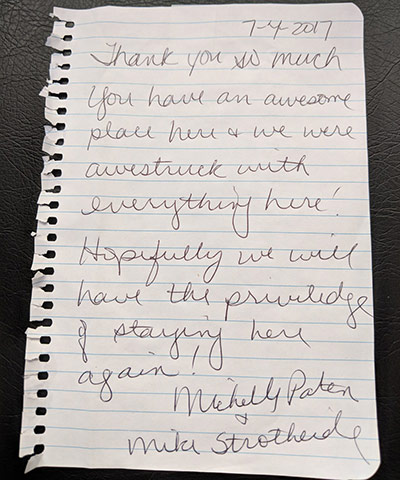 7-4-2017
Thank you so much
You have an awesome
place here & we were
awestruck with
everything here!
Hopefully we will
have the priviledge
of staying here
again!
Michelle
&
Mike